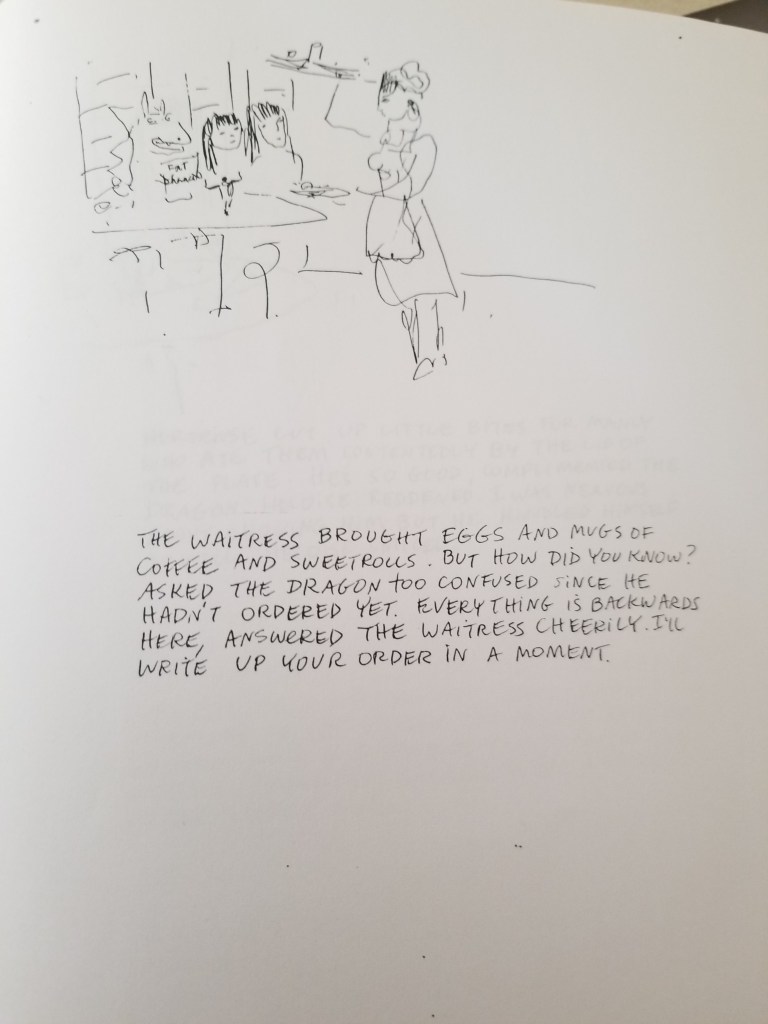 FAT
THE WAITRESS BROUGHT EGGS AND MUGS OF
COFFEE AND SWEETROLLS. BUT HOW DID YOU KNOW?
ASKED THE DRAGON TOO CONFUSED SINCE HE
HADN'T ORDERED YET. EVERYTHING IS BACKWARDS
HERE, ANSWERED THE WAITRESS CHEERILY. I'LL
WRITE UP YOUR ORDER IN A MOMENT.